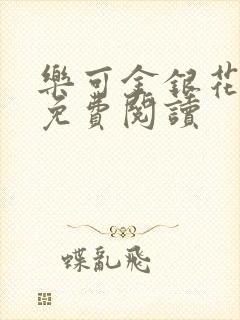 樂可金銀花
免費閱讀
蝶亂飛